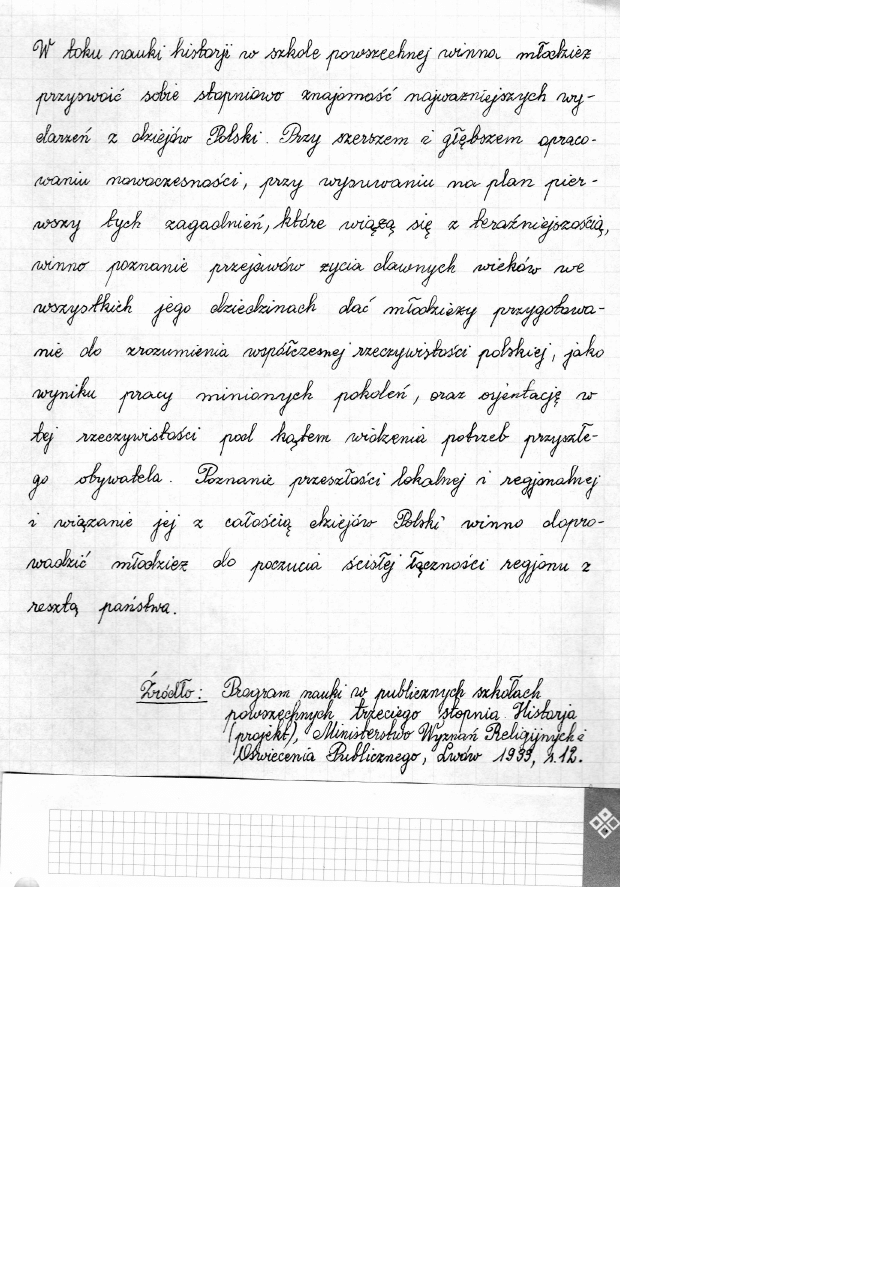 W toku nauki historji w szkole powszechnej winna młodzież
przyswoić sobie stopniowo znajomość najważniejszych wy-
darzeń z dziejów Polski. Przy szerszem i głębszem opraco-
waniu nowoczesności, przy wysuwaniu na plan pier-
wszy tych zagadnień, które wiążą się z teraźniejszością,
winno poznanie przejawów życia dawnych wieków we
wszystkich jego dziedzinach dać młodzieży przygotowa-
nie do zrozumienia współczesnej rzeczywistości polskiej, jako
wyniku pracy minionych pokoleń, oraz orjentację w
tej rzeczywistości pod kątem widzenia potrzeb przyszłe-
go obywatela. Poznanie przeszłości lokalnej i regjonalnej
i wiązanie jej z całością dziejów Polski winno dopro-
wadzić młodzież do poczucia ścisłej łączności regjonu z
resztą państwa.
Źródło: Program nauki w publicznych szkołach
powszechnych trzeciego stopnia. Historja
(projekt), Ministerstwo Wyznań Religijnych i
Oświecenia Publicznego, Lwów 1933, s. 12.